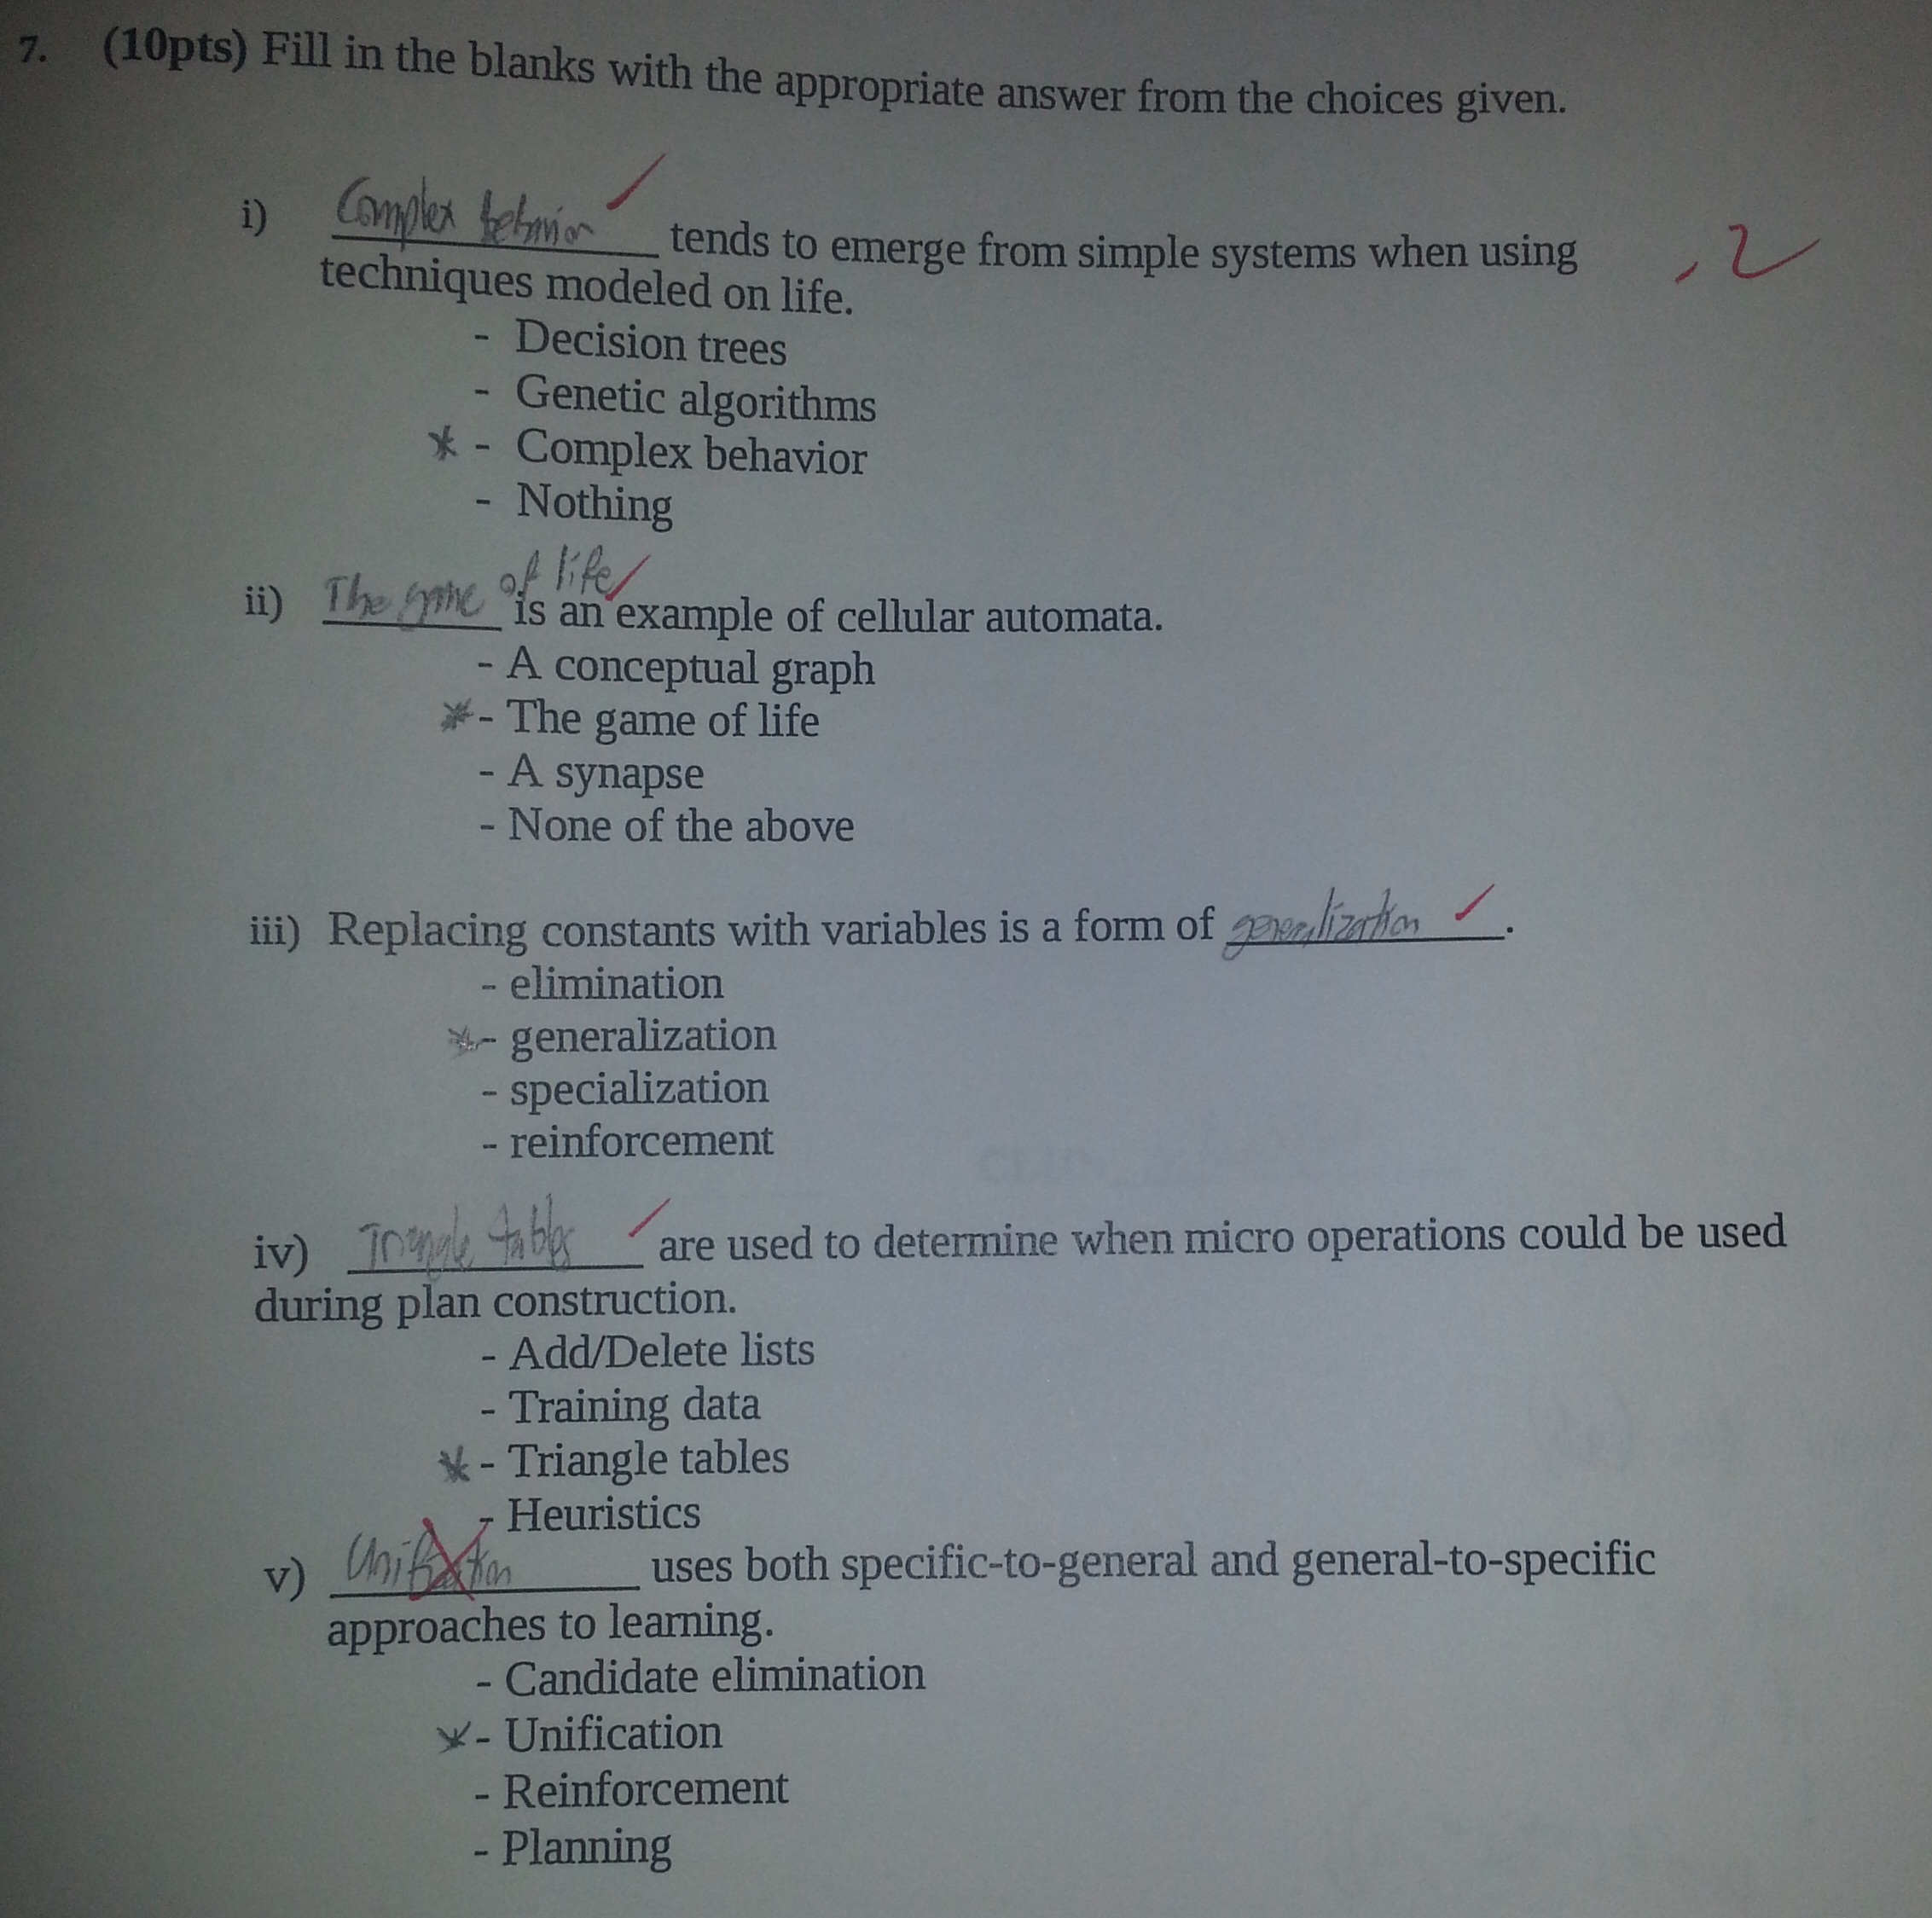 7. (10pts) Fill in the blanks with the appropriate answer from the choices given.
i) Complex behavior tends to emerge from simple systems when using
techniques modeled on life.
-2
- Decision trees
- Genetic algorithms
* - Complex behavior
- Nothing
ii) The game of life is an example of cellular automata.
- A conceptual graph
* - The game of life
- A synapse
- None of the above
iii) Replacing constants with variables is a form of generalization.
- elimination
* - generalization
- specialization
- reinforcement
iv) Triangle tables are used to determine when micro operations could be used
during plan construction.
- Add/Delete lists
- Training data
* - Triangle tables
- Heuristics
v) Unification uses both specific-to-general and general-to-specific
approaches to learning.
- Candidate elimination
* - Unification
- Reinforcement
- Planning